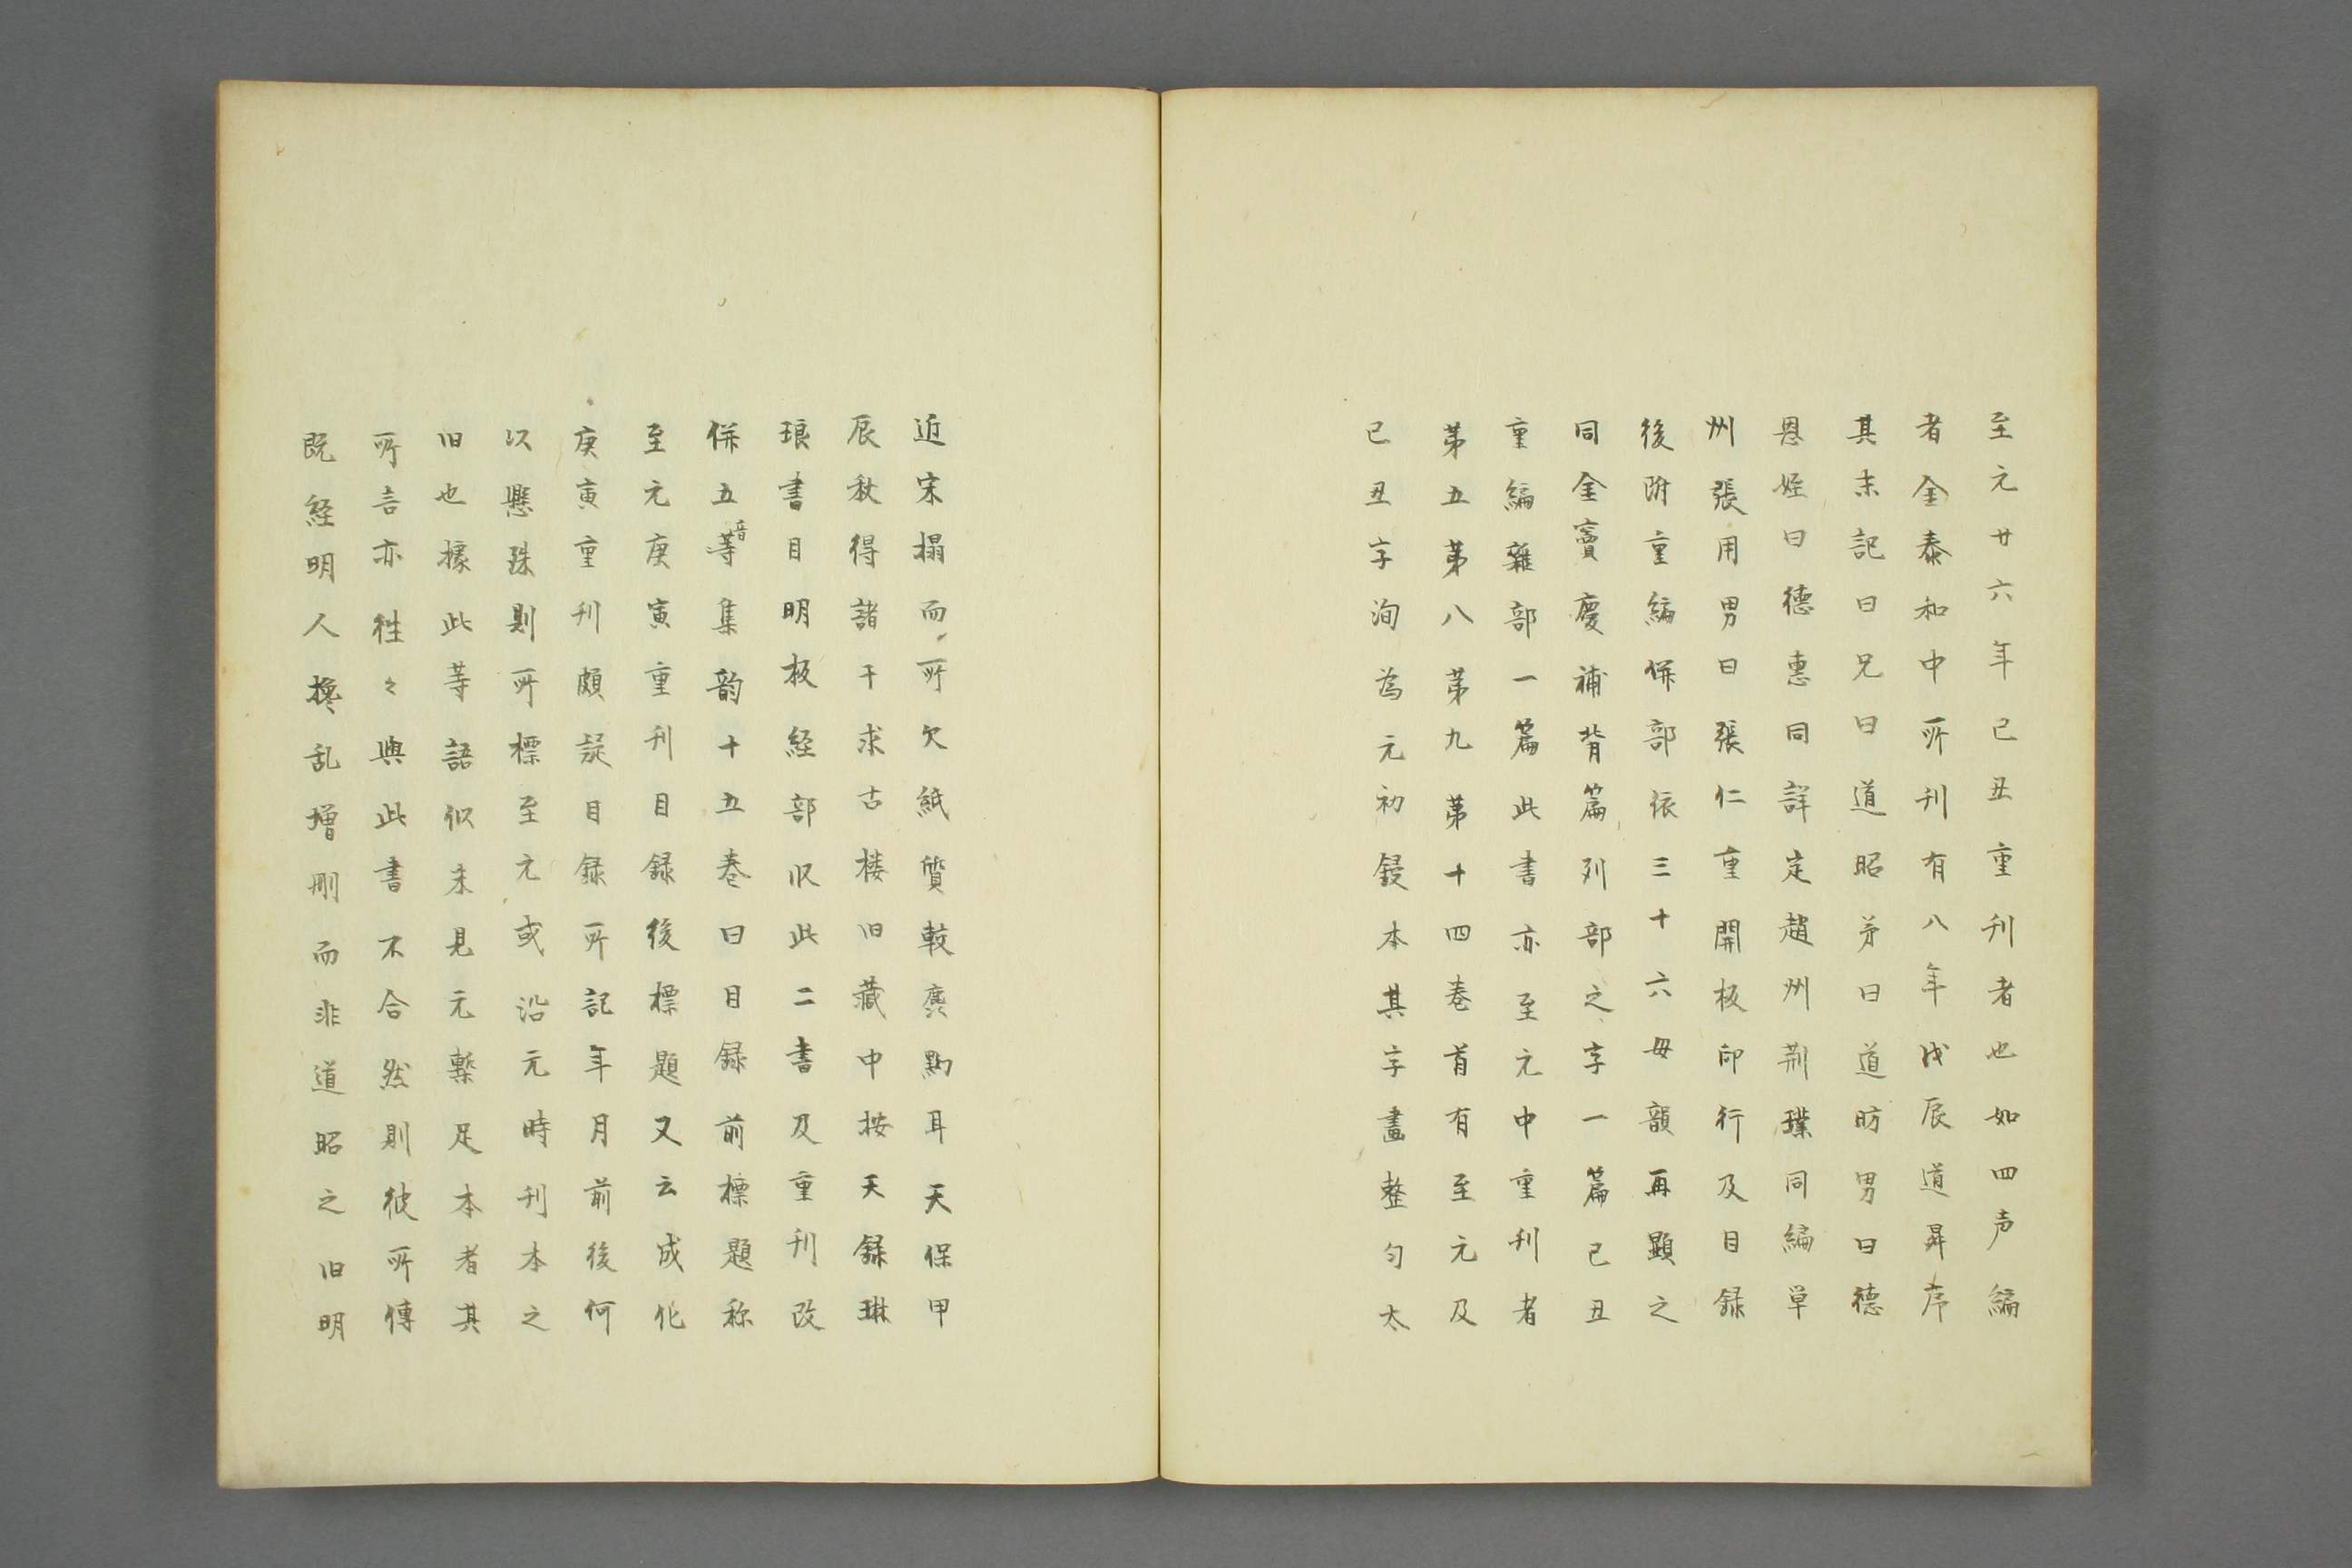 至元廿六年己丑重刊者也如四声編
者金泰和中所刊有八年戊辰道昇序
其末記曰兄曰道昭弟曰道昉男曰德
恩姪曰德惠同詳定趙州荊璞同編單
州張用男曰張仁重開板印行及目録
後附重編併部依三十六母韻再顯之
同金寶慶補背篇列部之字一篇己丑
重編雜部一篇此書亦至元中重刊者
第五第八第九第十四卷首有至元及
己丑字洵為元初鋟本其字畫整匀太
近宋搨而所欠紙質較麁黝耳天保甲
辰秋得諸千求古楼旧藏中按天録琳
琅書目明板経部収此二書及重刊改
併五音等集韵十五卷曰目録前標題称
至元庚寅重刊目録後標題又云成化
庚寅重刊頗疑目録所記年月前後何
以懸殊則所標至元或沿元時刊本之
旧也據此等語似未見元槧足本者其
所言亦往々與此書不合然則彼所傳
既経明人攙乱増刪而非道昭之旧明